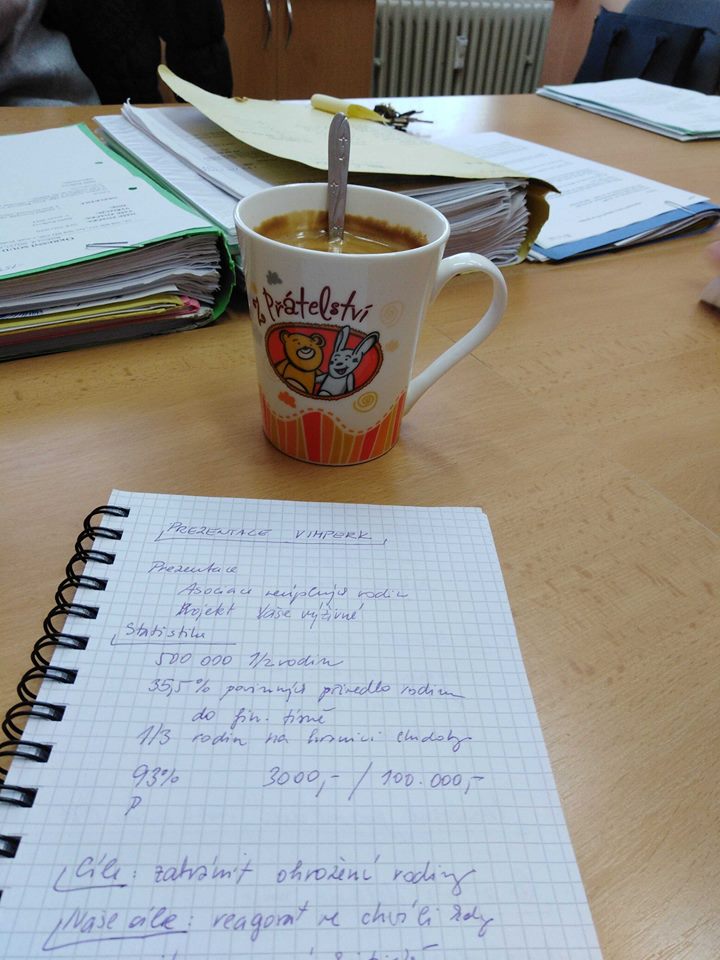 Z Přátelství
PREZENTACE VIMPERK
Prezentace
Asociace neúplných rodin
Projekt Vaše výživné
Statistika
500 000 1/2 rodin
35,5% povinných přivedlo rodinu
do fin. tísně
1/3 rodin na hranici chudoby
93% 3000,- / 100.000,-
P
Cíle: zabránit ohrožení rodiny
Naše cíle: reagovat ve chvíli kdy